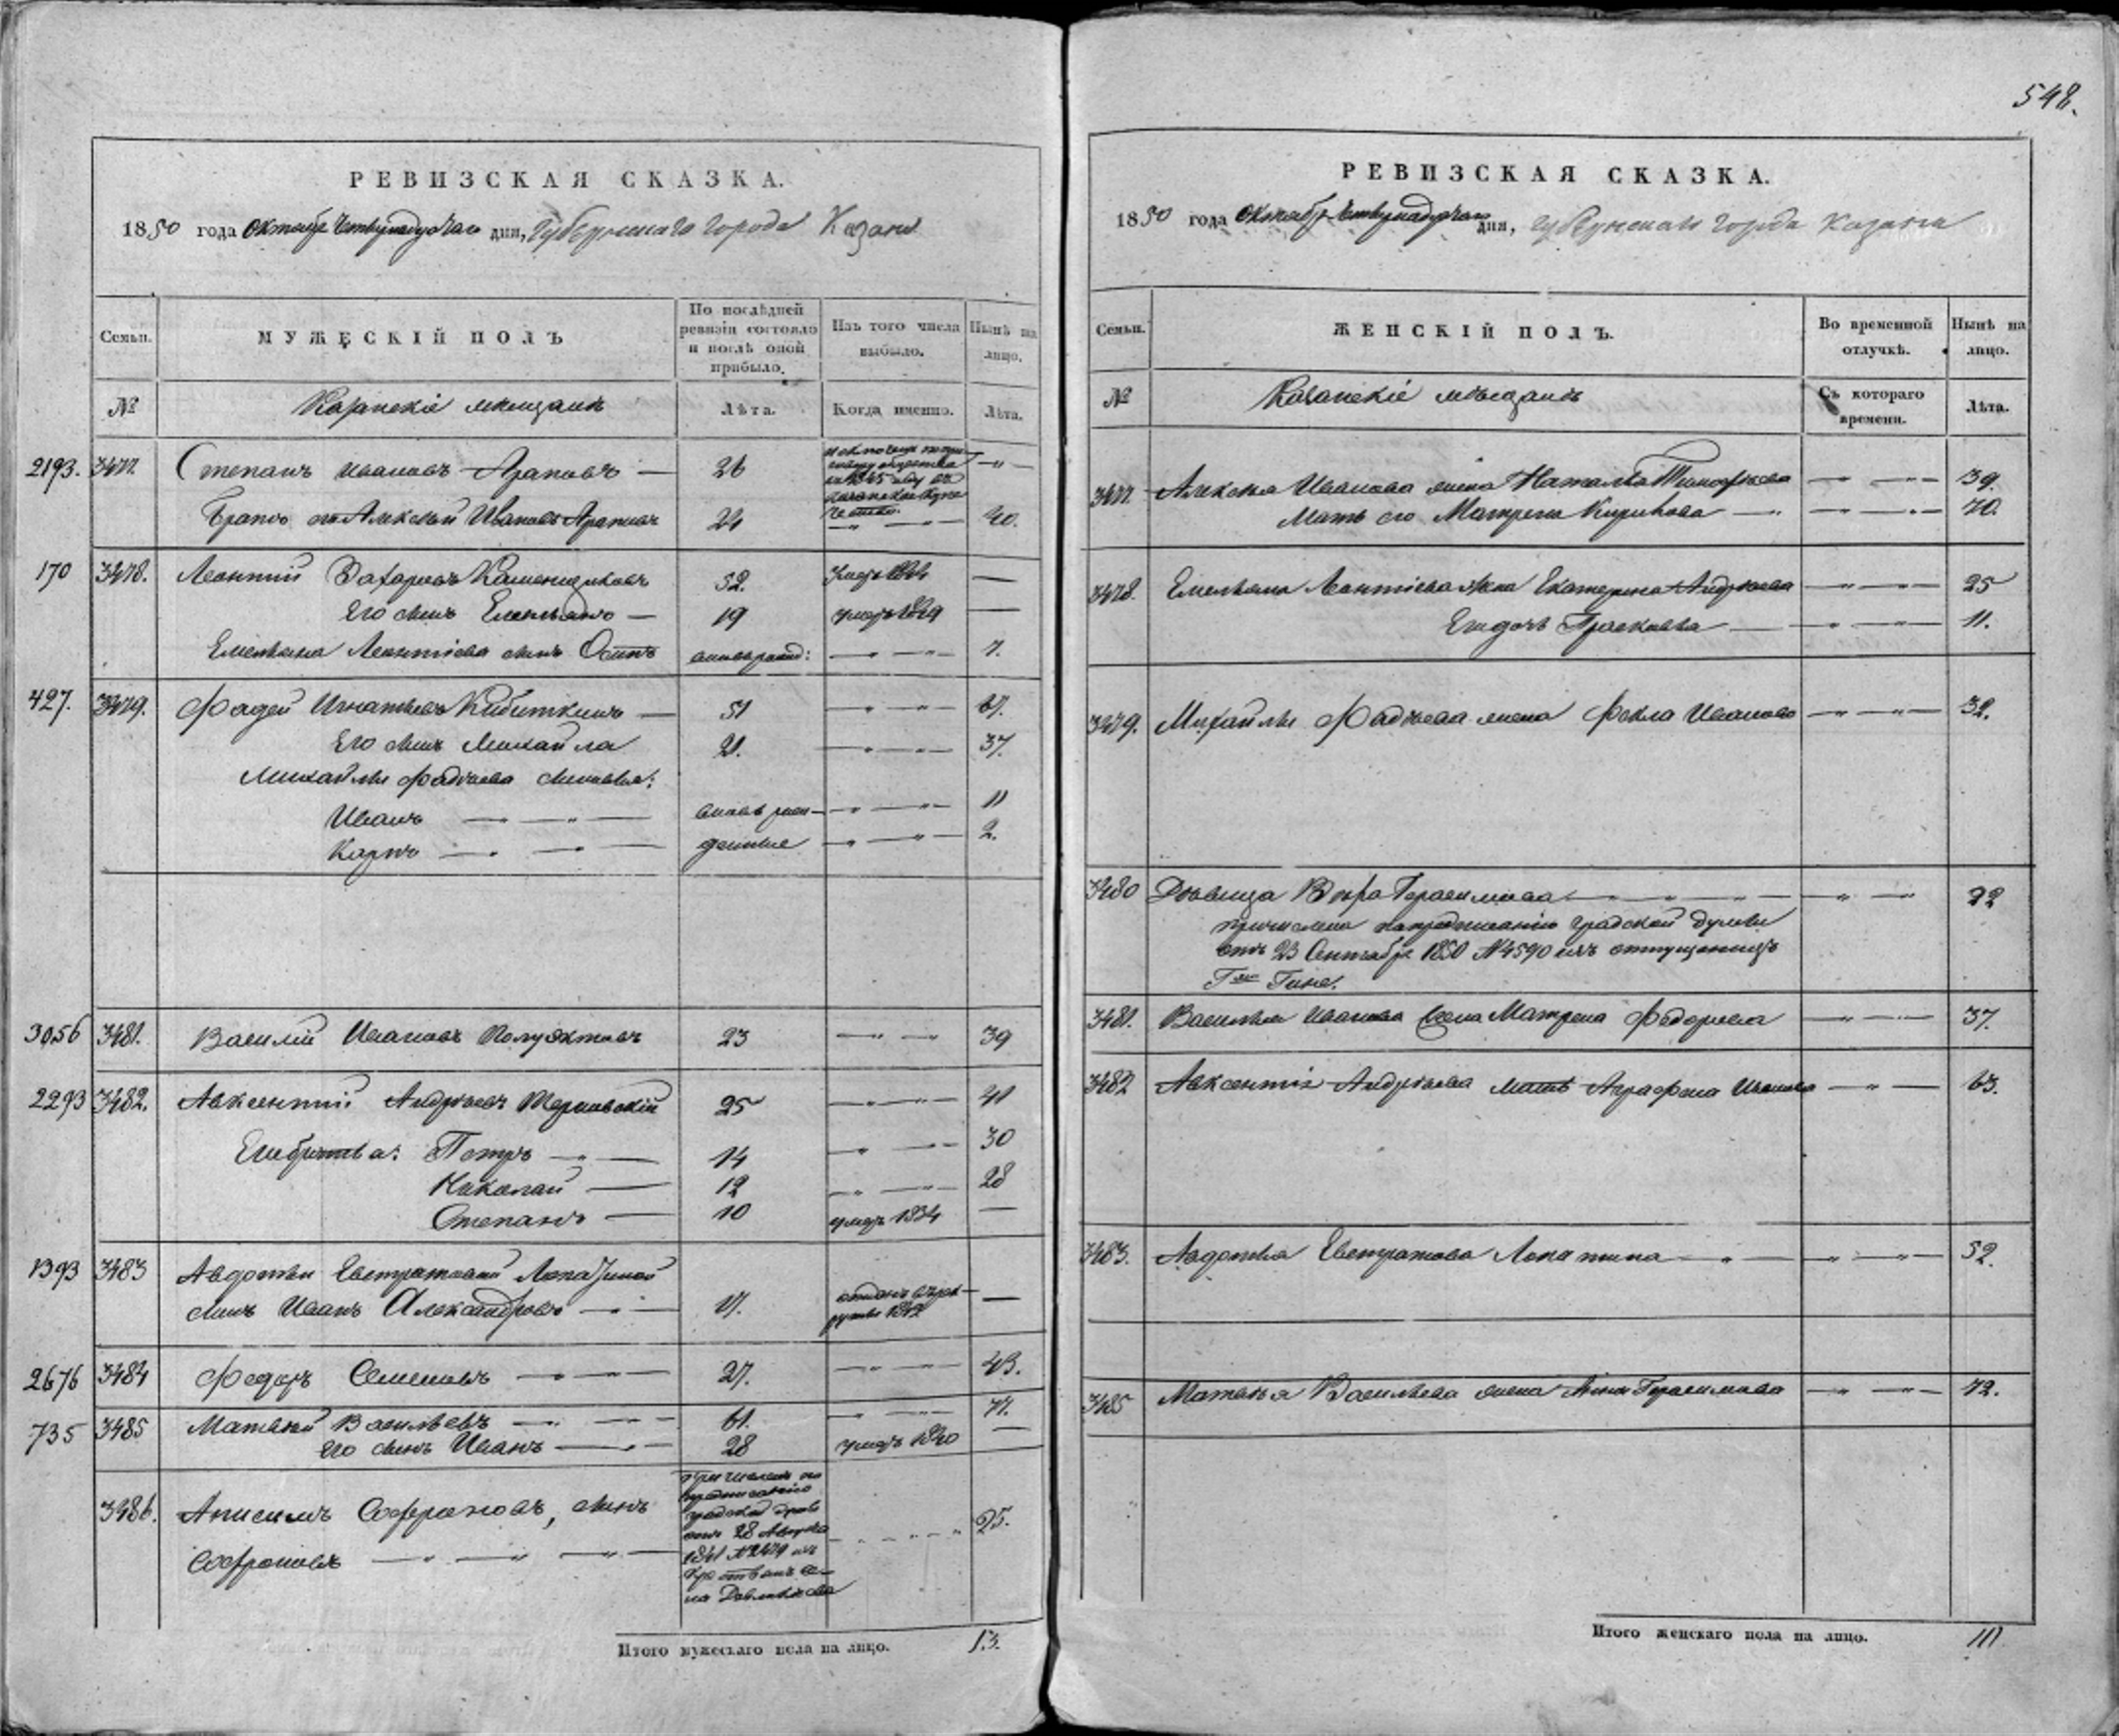 РЕВИЗСКАЯ СКАЗКА.
1850 года Октября Четвертагонадесять дня, Губернскаго города Казани
Семьи.
МУЖЕСКІЙ ПОЛЪ
По послѣдней ревизіи состояло и послѣ оной прибыло.
Изъ того числа выбыло.
Нынѣ на лицо.
№
Казанскіе мещане
Лѣта.
Когда именно.
Лѣта.
2193. 3477. Степанъ Ивановъ Араповъ — 26
1845
Братъ его Алексѣй Ивановъ Араповъ 24 — 40.
170 3478. Леонтий Захаровъ Каменщиковъ 52. умеръ 1844 —
Его сынъ Емельянъ — 19 умеръ 1849 —
Емельяна Леонтіева сынъ Осипъ вновь рожд: — 7.
427. 3479. Фадей Игнатьевъ Кибиткинъ — 51 — 67.
Его сынъ Михайла 21. — 37.
Михайлы Фадѣева сыновья:
Иванъ — вновь рож- — 11
Карпъ — денные — 2.
3056 3481. Василій Ивановъ Полуэктовъ 23 — 39
2293 3482. Авксентий Андреевъ Терновскій 25 — 41
Его братья: Петръ — 14 — 30
Николай — 12 — 28
Степанъ — 10 умеръ 1834 —
1393 3483 Авдотьи Евстратовой Лопатиной
сынъ Иванъ Александровъ — 17. отданъ в рек-
руты 1842 —
2676 3484 Федоръ Семеновъ — 27. — 43.
735 3485 Матвей Васильевъ — 61. — 77.
Его сынъ Иванъ — 28 умеръ 1840 —
3486. Анисимъ Софроновъ, сынъ
Софроновъ —
причисленъ по
предписанію
градской думы
отъ 28 Августа
1841 № 2479 изъ
25.
Итого мужескаго пола на лицо. 13.
548.
РЕВИЗСКАЯ СКАЗКА.
1850 года Октября Четвертагонадесять дня, Губернскаго города Казани
Семьи.
ЖЕНСКІЙ ПОЛЪ.
Во временной отлучкѣ.
Нынѣ на лицо.
№
Казанскіе мѣщане
Съ котораго времени.
Лѣта.
3477. Алексѣя Иванова жена Наталья Тимофѣева — 39.
Мать его Матрена Кирилова — 70.
3478. Емельяна Леонтіева жена Екатерина Андреева — 25
Его дочь Прасковья — 11.
3479. Михайлы Фадѣева жена Фекла Иванова — 32.
3480 Дѣвица Вѣра Герасимова — 22
причислена по предписанію градской думы
отъ 23 Сентября 1850 № 4590 изъ отпущенницъ
Гжи Гине.
3481. Василья Иванова жена Матрена Федорова — 37.
3482 Авксентія Андреева мать Аграфена Иванова — 63.
3483. Авдотья Евстратова Лопатина — 52.
3485 Матвѣя Васильева жена Анна Герасимова — 72.
Итого женскаго пола на лицо. 111